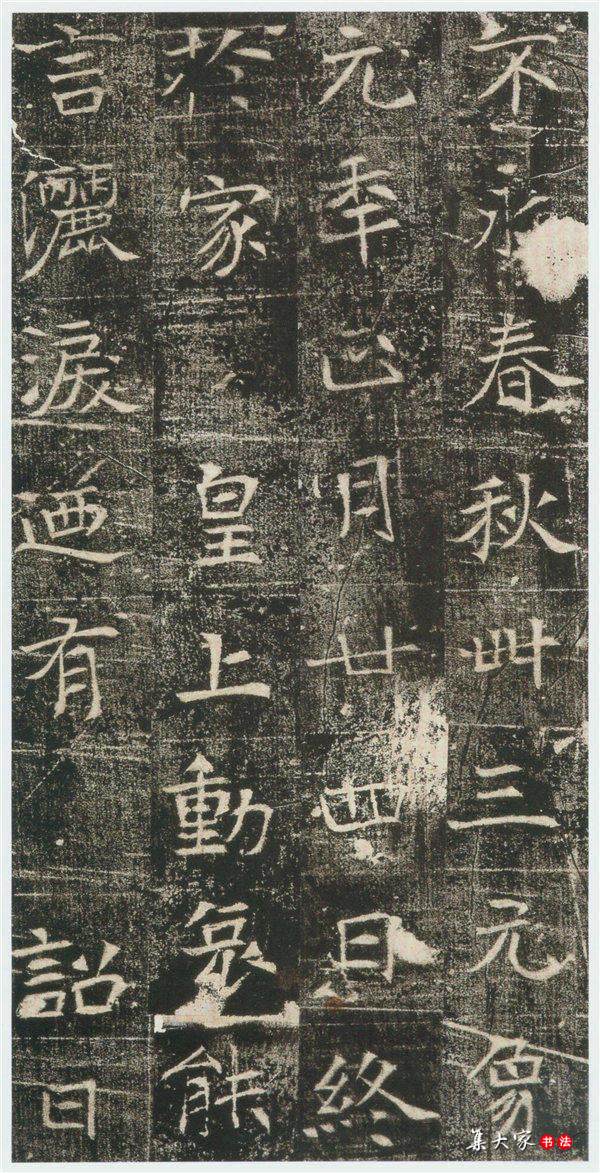 不永春秋卌三元象
元年正月廿四日終
於家 皇上動哀能
言灑淚迺有 詔曰
集大家书法